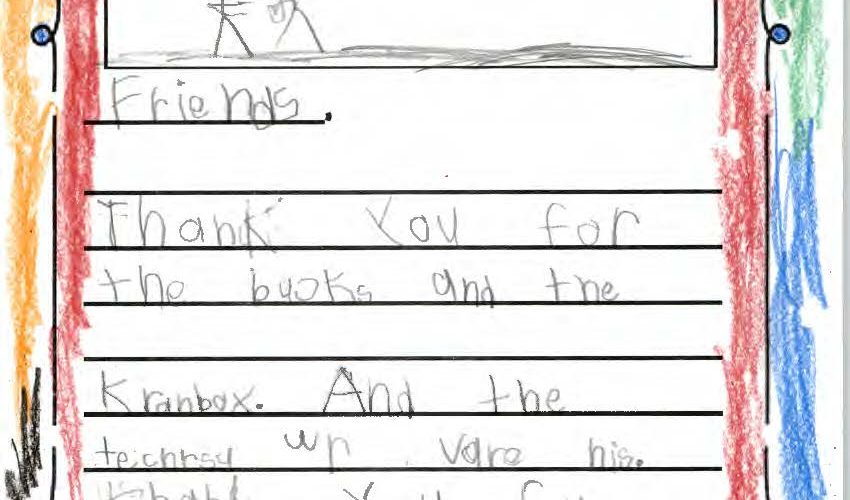 Friends.
Thank You for
the books and the
Kranbox. And the
teichrsy wr vare nis.